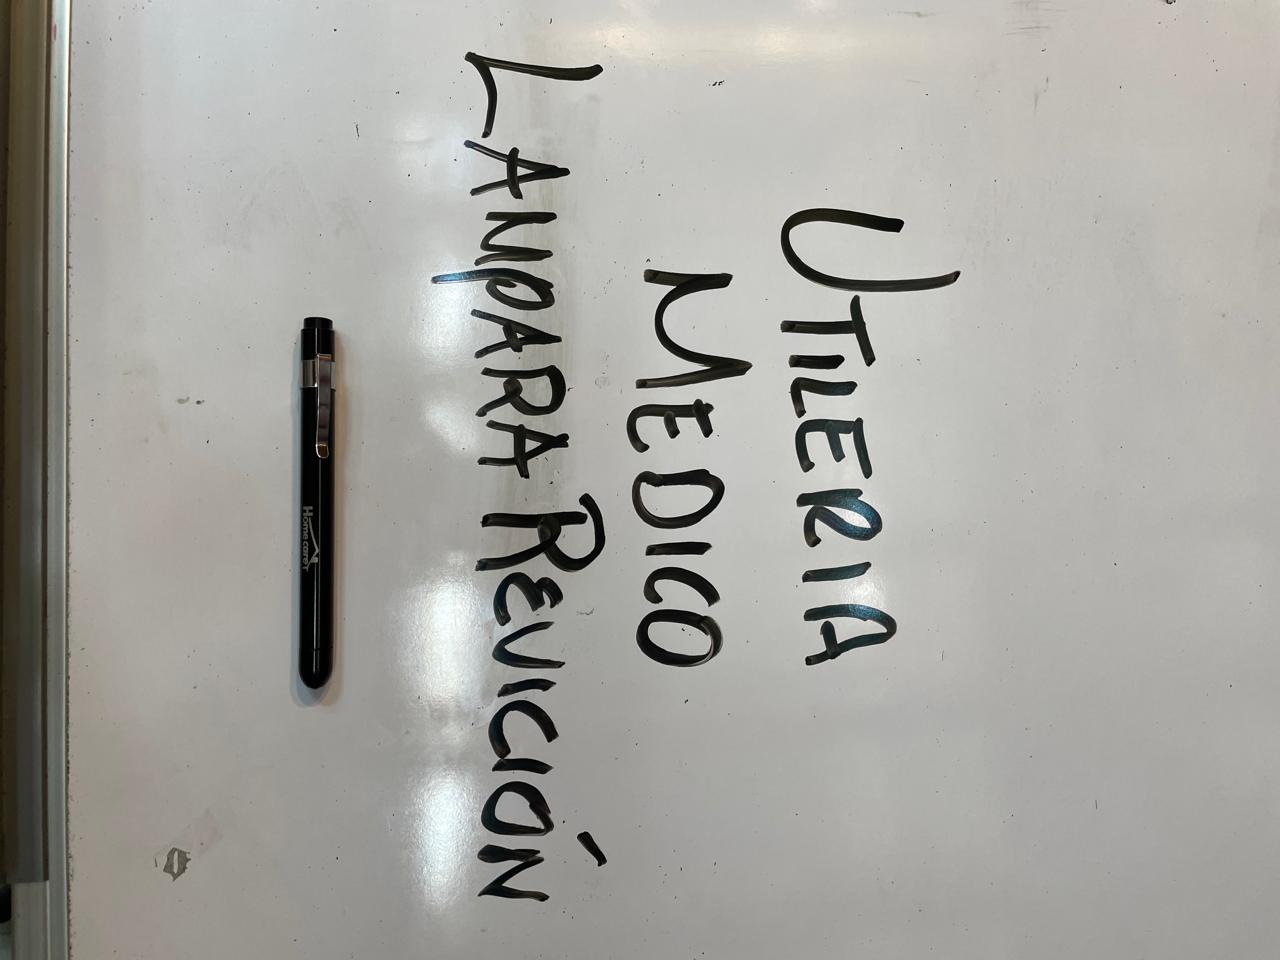 UTILERIA
MEDICO
LAMPARA REVICIÓN
Home care